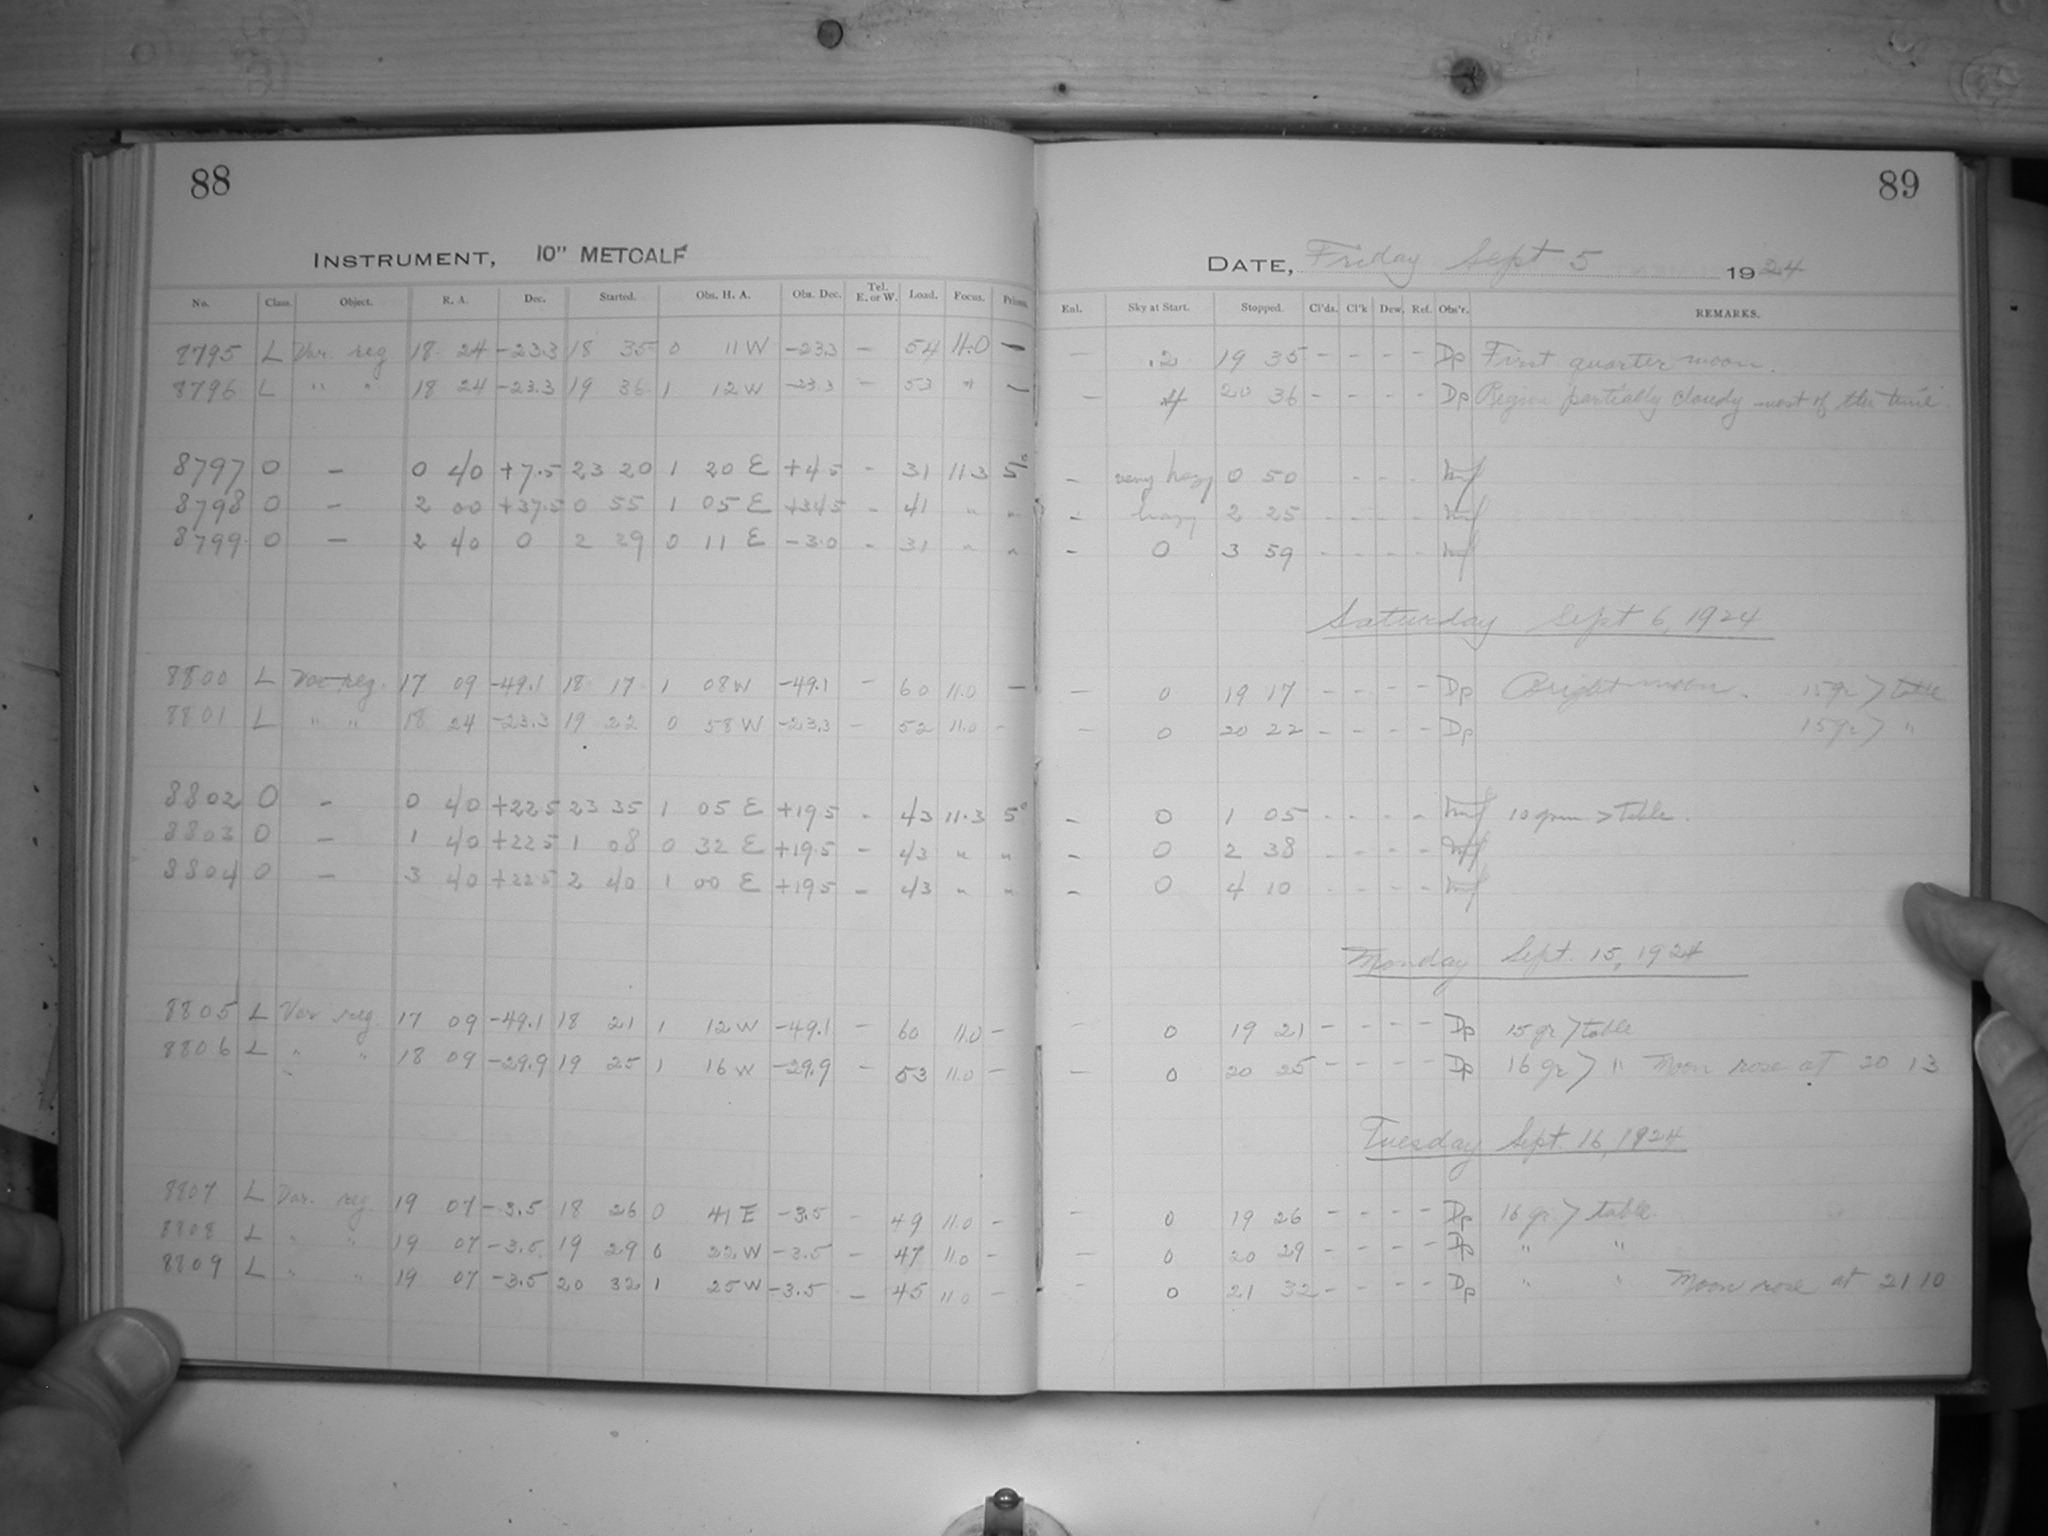 88
INSTRUMENT, 10" METCALF
No. Class. Object. R. A. Dec. Started. Obs. H. A. Obs. Dec. Tel. E. or W. Load. Focus. Prisms.
8795 L Var. reg 18 24 -23.3 18 35 0 11 W -23.3 - 54 11.0 -
8796 L " " 18 24 -23.3 19 36 1 12 W -23.3 - 53 " -
8797 O - 0 40 +7.5 23 20 1 20 E +4.5 - 31 11.3 5°
8798 O - 2 00 +37.5 0 55 1 05 E +34.5 - 41 " "
8799 O - 2 40 0 2 29 0 11 E -3.0 - 31 " "
8800 L Var reg. 17 09 -49.1 18 17 1 08 W -49.1 - 60 11.0 -
8801 L " " 18 24 -23.3 19 22 0 58 W -23.3 - 52 11.0 -
8802 O - 0 40 +22.5 23 35 1 05 E +19.5 - 43 11.3 5°
8803 O - 1 40 +22.5 1 08 0 32 E +19.5 - 43 " "
8804 O - 3 40 +22.5 2 40 1 00 E +19.5 - 43 " "
8805 L Var reg. 17 09 -49.1 18 21 1 12 W -49.1 - 60 11.0 -
8806 L " " 18 09 -29.9 19 25 1 16 W -29.9 - 53 11.0 -
8807 L Var. reg. 19 07 -3.5 18 26 0 41 E -3.5 - 49 11.0 -
8808 L " " 19 07 -3.5 19 29 0 22 W -3.5 - 47 11.0 -
8809 L " " 19 07 -3.5 20 32 1 25 W -3.5 - 45 11.0 -
89
DATE, Friday Sept 5 1924
Enl. Sky at Start. Stopped. Cl'ds. Cl'k Dew. Ref. Obs'r. REMARKS.
- .2 19 35 - - - - Dp First quarter moon.
- .4 20 36 - - - - Dp Region partially cloudy most of the time.
- very hazy 0 50 - - - -
- hazy 2 25 - - - -
- 0 3 59 - - - -
Saturday Sept 6, 1924
- 0 19 17 - - - - Dp Bright moon. 15 gr > table
- 0 20 22 - - - - Dp 15 gr > "
- 0 1 05 - - - - 10 grm > Table.
- 0 2 38 - - - -
- 0 4 10 - - - -
Monday Sept. 15, 1924
- 0 19 21 - - - - Dp 15 gr > table
- 0 20 25 - - - - Dp 16 gr > " Moon rose at 20 13
Tuesday Sept. 16, 1924
- 0 19 26 - - - - Dp 16 gr > table.
- 0 20 29 - - - - Dp " "
- 0 21 32 - - - - Dp " " Moon rose at 21 10